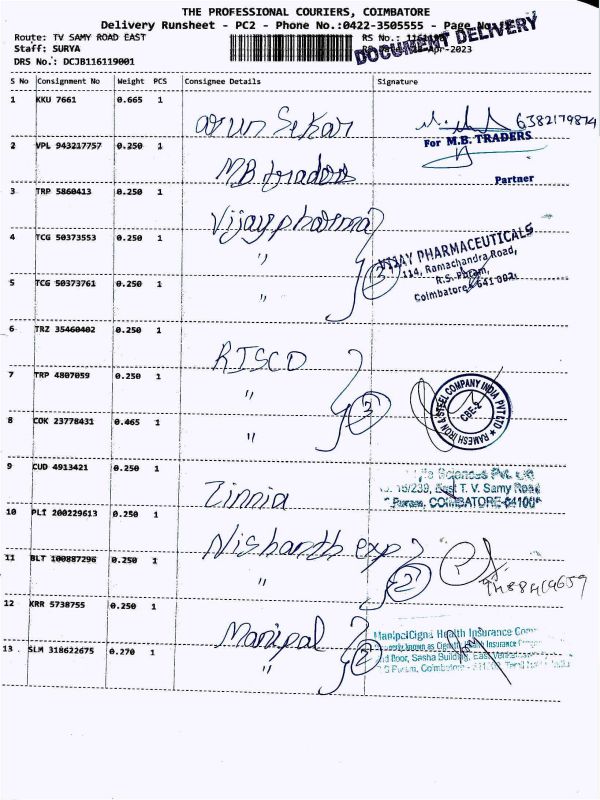 THE PROFESSIONAL COURIERS, COIMBATORE
Delivery Runsheet - PC2 - Phone No.:0422-3505555 - Page No.:
Route: TV SAMY ROAD EAST
RS No.:
Staff: SURYA
-Apr-2023
DOCUMENT DELIVERY
DRS No.: DCJB116119001
S No Consignment No Weight PCS Consignee Details Signature
1 KKU 7661 0.665 1 Arun Sekar 6382179874
For M.B. TRADERS
Partner
2 VPL 943217757 0.250 1 M.B. traders
3 TRP 5860413 0.250 1 Vijay pharma
4 TCG 50373553 0.250 1 "
5 TCG 50373761 0.250 1 " 3
VIJAY PHARMACEUTICALS
114, Ramachandra Road,
R.S. Puram,
Coimbatore - 641 002.
6 TRZ 35460402 0.250 1 RISCO
7 TRP 4807059 0.250 1 "
8 COK 23778431 0.465 1 " 3
RAMESH IRON & STEEL COMPANY INDIA PVT LTD
CBE-2
9 CUD 4913421 0.250 1 Zinnia
Sciences Pvt. Ltd
15/239, East T. V. Samy Road
Puram, COIMBATORE-64100
10 PLI 200229613 0.250 1 Nishanth exp
11 BLT 100887296 0.250 1 " 2
12 KRR 5738755 0.250 1 Manipal
13 SLM 318622675 0.270 1 " 2
ManipalCigna Health Insurance
known as Health Insurance
Door, Sasha Building, East
Puram, Coimbatore - Tamil India